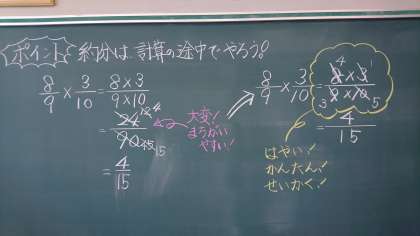 ポイント 約分は計算の途中でやろう!
8/9 × 3/10 = 8×3/9×10
= 24/90 12 4 45 15
= 4/15
大変!
まちがい
やすい!
8/9 × 3/10 = 8×3/9×10 4 1 3 5
= 4/15
はやい!
かんたん!
せいかく!